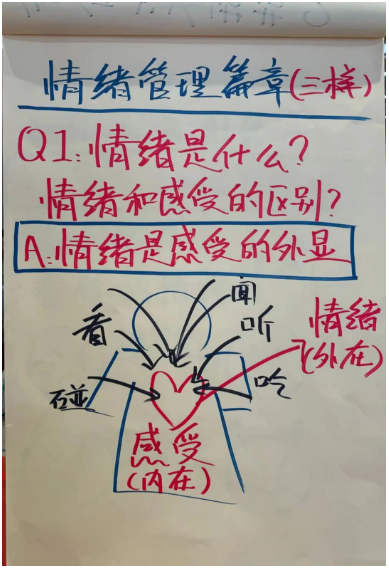 情绪管理篇章(三样)
Q1:情绪是什么?
情绪和感受的区别?
A:情绪是感受的外显
闻
看
听
情绪
(外在)
碰
吃
感受
(内在)